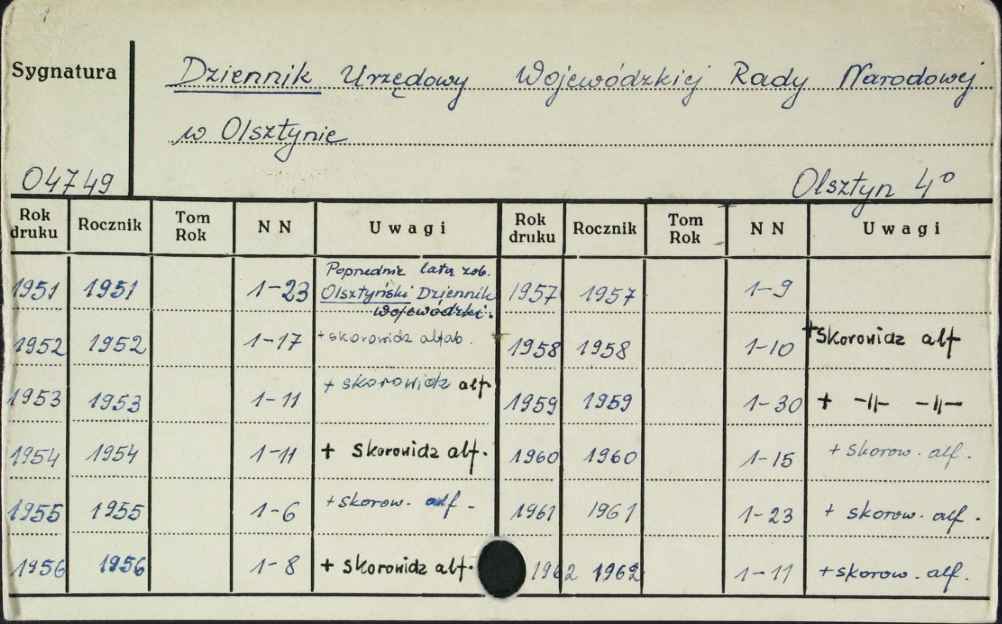 Sygnatura
Dziennik Urzędowy Wojewódzkiej Rady Narodowej
w Olsztynie
04749
Olsztyn 4°
Rok druku Rocznik Tom Rok N N Uwagi Rok druku Rocznik Tom Rok N N Uwagi
1951 1951 1-23 Poprzednie lata zob. Olsztyński Dziennik wojewódzki. 1957 1957 1-9
1952 1952 1-17 + skorowidz alfab. 1958 1958 1-10 + skorowidz alf
1953 1953 1-11 + skorowidz alf. 1959 1959 1-30 + -||- -||-
1954 1954 1-11 + skorowidz alf. 1960 1960 1-15 + skorow. alf.
1955 1955 1-6 + skorow. alf. 1961 1961 1-23 + skorow. alf.
1956 1956 1-8 + skorowidz alf. 1962 1962 1-11 + skorow. alf.